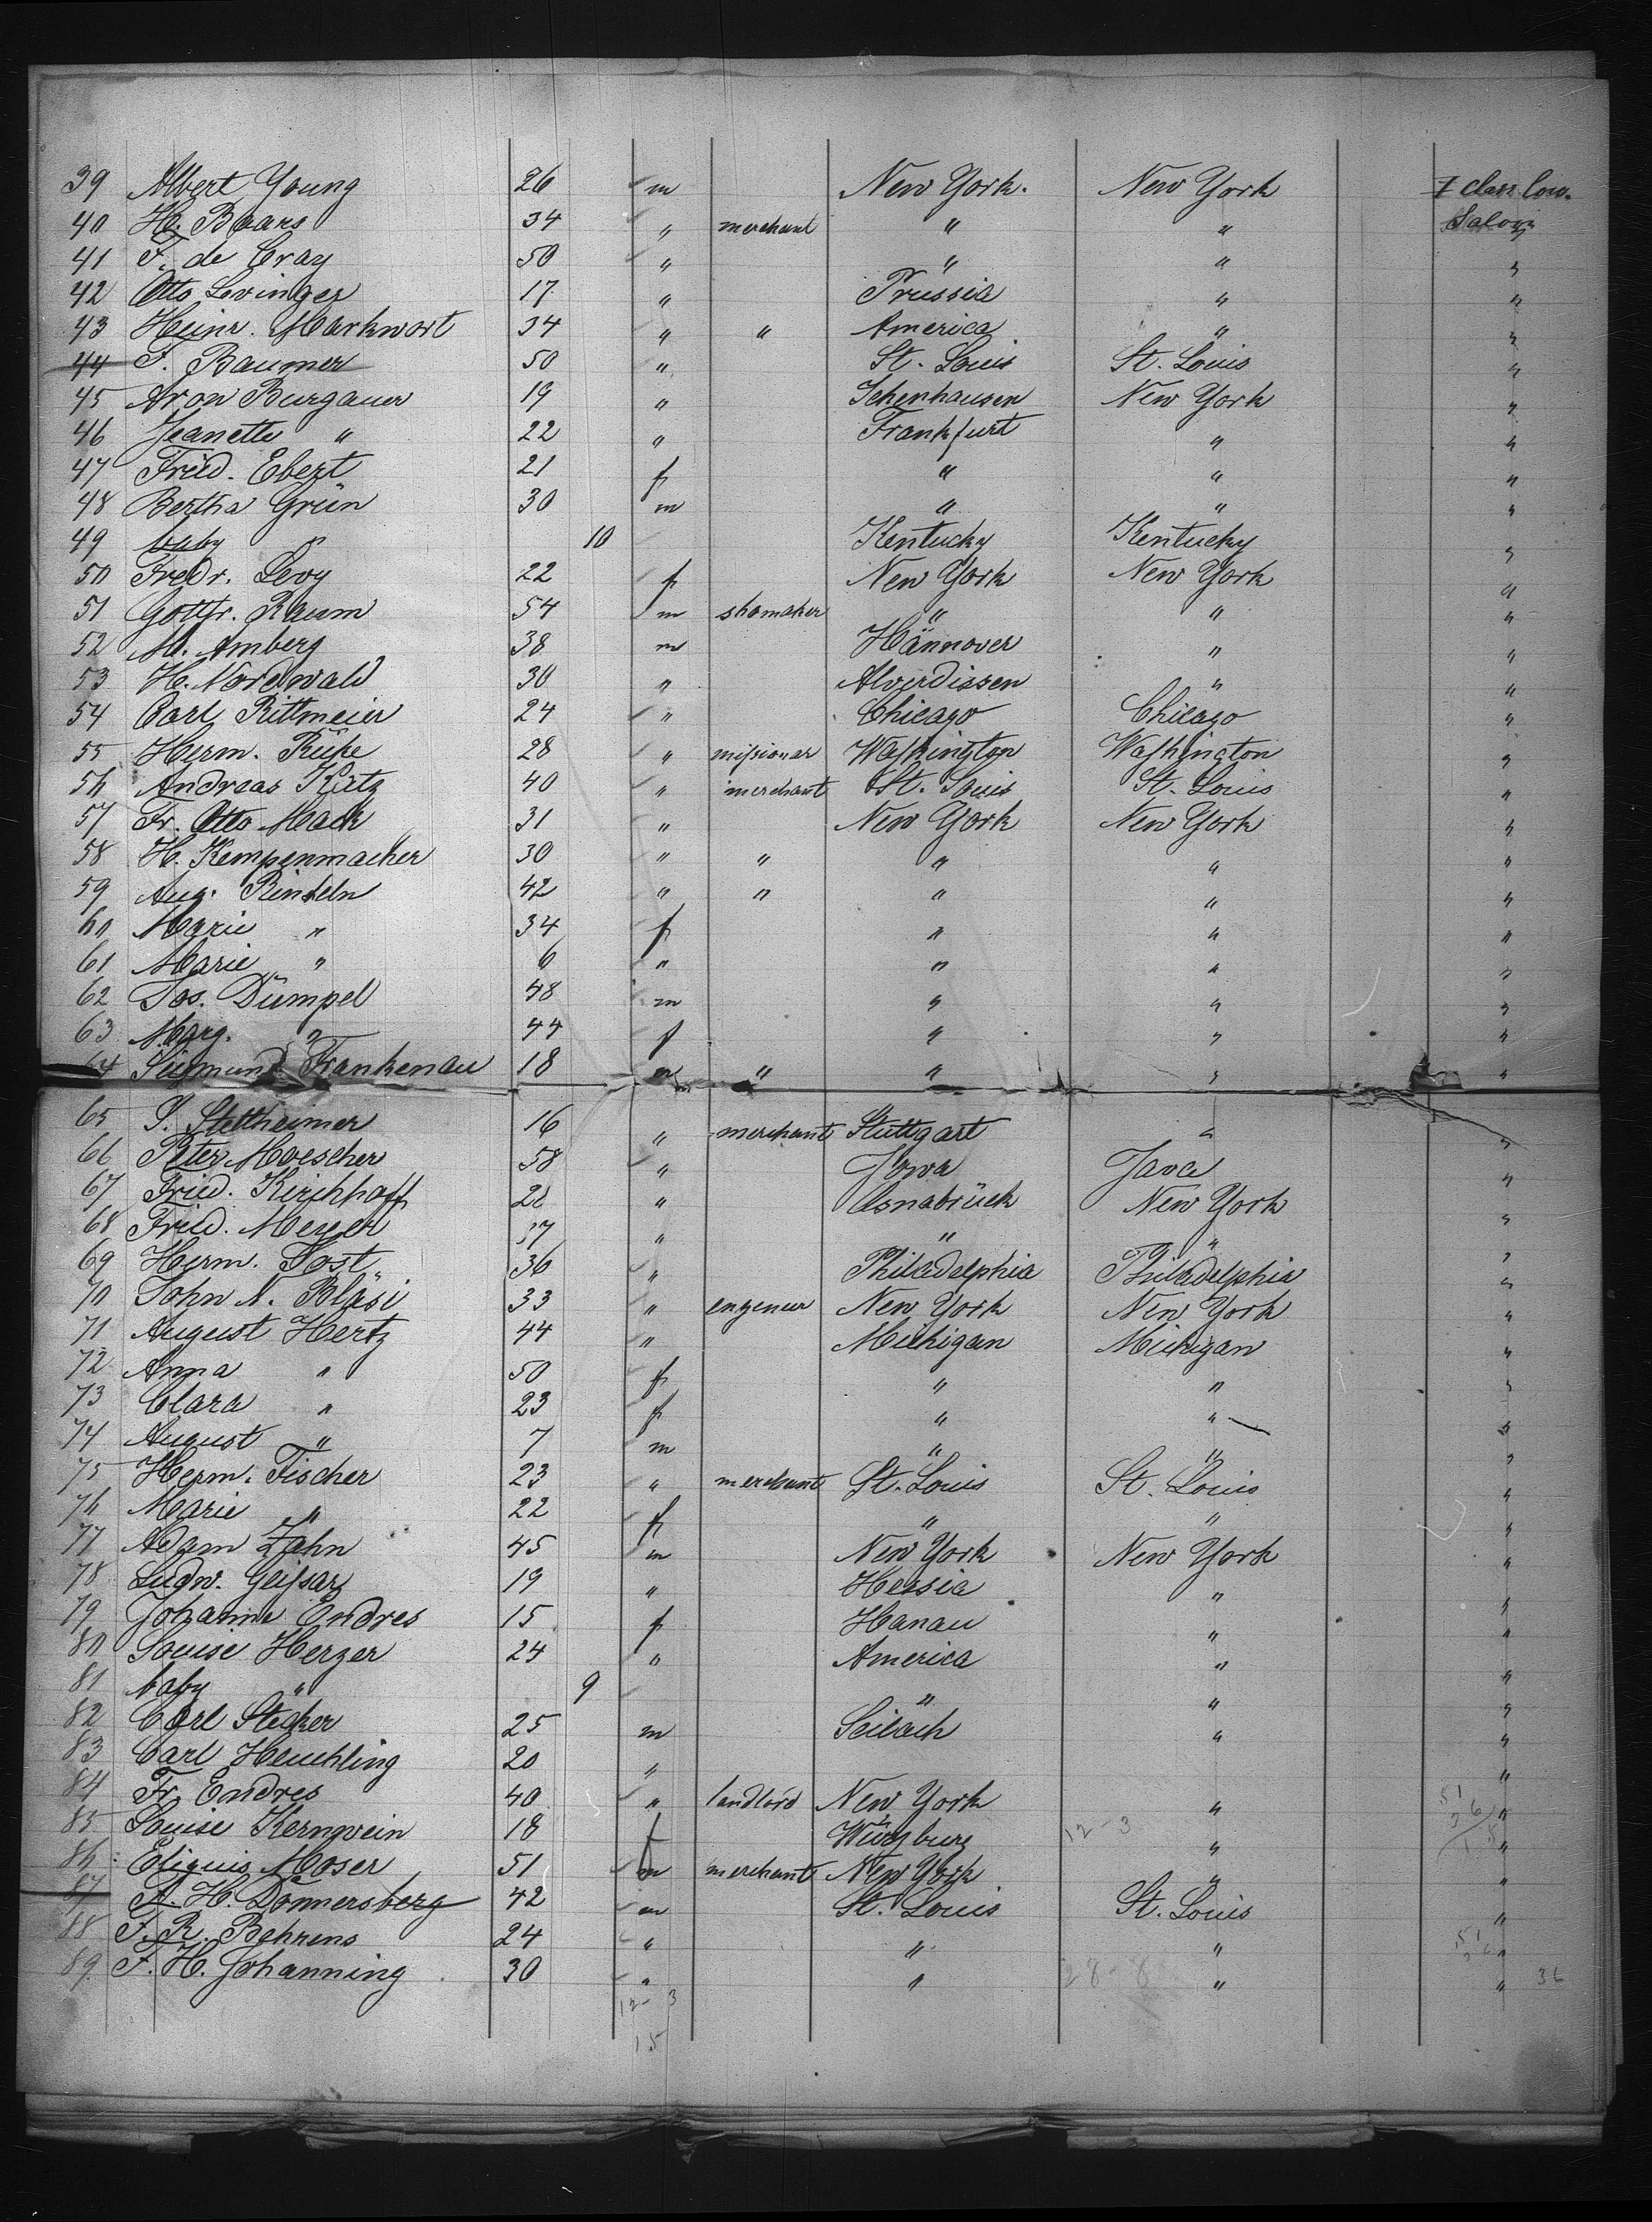 39 Albert Young 26 m New York. New York I class low.
40 H. Baars 34 " merchant " " Saloon
41 F. de Cray 50 " " " "
42 Otto Levinger 17 " Prussia " "
43 Heinr. Markwort 34 " " America " "
44 F. Baumer 50 " St. Louis St. Louis "
45 Aron Burgauer 19 " Ichenhausen New York "
46 Jeanette " 22 " Frankfurt " "
47 Fried. Ebert 21 f " " "
48 Bertha Grün 30 m " " "
49 baby " 10 Kentucky Kentucky "
50 Fredr. Levy 22 f New York New York "
51 Gottfr. Raum 54 m shomaker " " "
52 M. Amberg 38 m Hannover " "
53 H. Nordwald 30 " Alverdissen " "
54 Carl Rittmeier 24 " Chicago Chicago "
55 Herm. 28 " missionar Washington Washington "
56 Andreas Katz 40 " merchant St. Louis St. Louis "
57 Fr. Otto Mack 31 " New York New York "
58 H. Kempenmacher 30 " " " " "
59 Aug. Rinteln 42 " " " " "
60 Marie " 34 f " " "
61 Marie " 6 " " " "
62 Jos. Dümpel 48 m " " "
63 Marg. " 44 f " " "
64 Siegmund Frankenau 18 m " " " "
65 S. Stettheimer 16 " merchant Stuttgart " "
66 Peter Moescher 58 " Jowa Java "
67 Fried. Kirchhoff " Osnabrück New York "
68 Fried. Meyer 17 " " " "
69 Herm. Jost 36 " Philadelphia Philadelphia "
70 John N. Bläsi 33 " engeneur New York New York "
71 August Hertz 44 " Michigan Michigan "
72 Anna " 50 f " " "
73 Clara " 23 f " " "
74 August " 7 m " " "
75 Herm. Fischer 23 " merchant St. Louis St. Louis "
76 Marie " 22 f " " "
77 Adam Zahn 45 m New York New York "
78 Ludw. 19 " Hessia " "
79 Johanne Endres 15 f Hanau " "
80 Louise Herzer 24 " America " "
81 baby " 9 " " "
82 Carl Stecher 25 m " "
83 Carl Heuchling 20 " "
84 Fr. Endres 40 " landlord New York " "
85 Louise Kernwein 18 f Würzburg 12-3 " "
86 Eliguis Moser 51 m merchant New York " "
87 A. H. Donnersberg 42 m St. Louis St. Louis "
88 F. R. Behrens 24 " " " "
89 F. H. Johanning 30 " " 28-8 " " 36
12-3
15